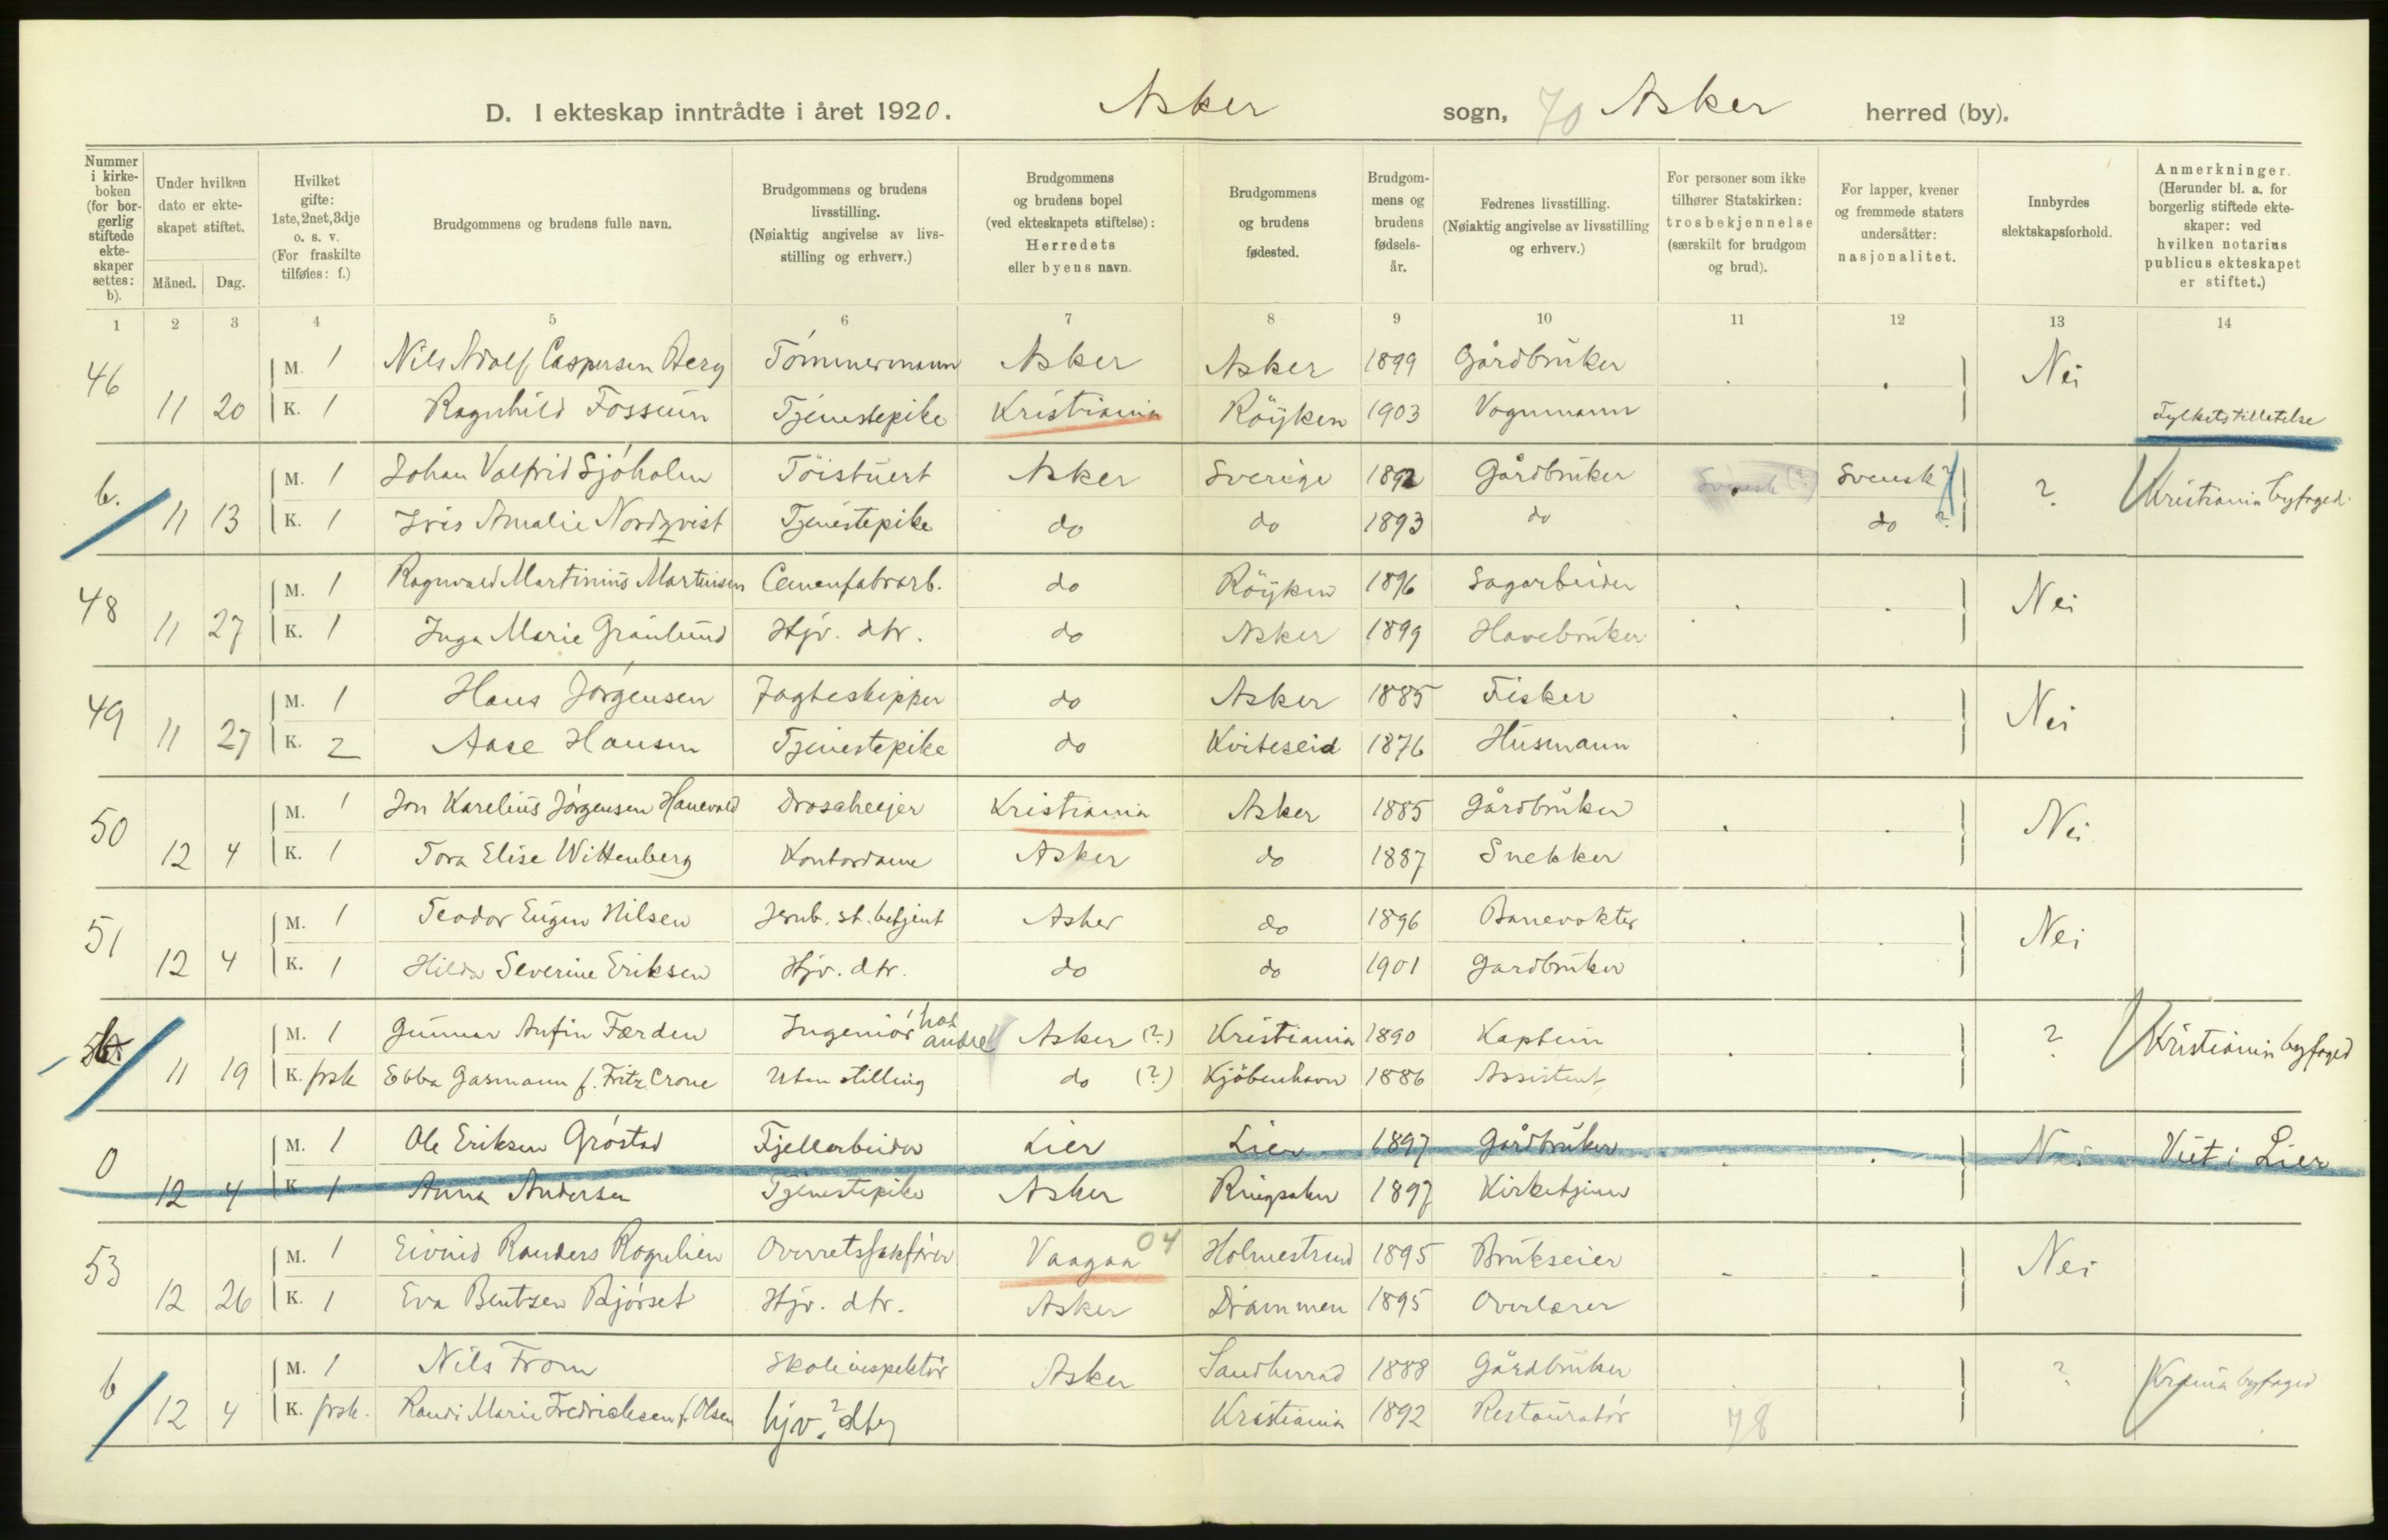 D. I ekteskap inntrådte i året 1920. Asker sogn, 70 Asker herred (by).
Nummer i kirkeboken (for borgerlig stiftede ekteskaper settes: b).
Under hvilken dato er ekteskapet stiftet. Måned. Dag.
Hvilket gifte: 1ste, 2net, 3dje o. s. v. (For fraskilte tilføies: f.)
Brudgommens og brudens fulle navn.
Brudgommens og brudens livsstilling. (Nøiaktig angivelse av livsstilling og erhverv.)
Brudgommens og brudens bopel (ved ekteskapets stiftelse): Herredets eller byens navn.
Brudgommens og brudens fødested.
Brudgommens og brudens fødselsår.
Fedrenes livsstilling. (Nøiaktig angivelse av livsstilling og erhverv.)
For personer som ikke tilhører Statskirken: trosbekjennelse (særskilt for brudgom og brud).
For lapper, kvener og fremmede staters undersåtter: nasjonalitet.
Innbyrdes slektskapsforhold.
Anmerkninger. (Herunder bl. a. for borgerlig stiftede ekteskaper: ved hvilken notarius publicus ekteskapet er stiftet.)
1 2 3 4 5 6 7 8 9 10 11 12 13 14
46 M. 1 Nils Adolf Caspersen Berg Tømmermann Asker Asker 1899 Gårdbruker Nei
11 20 K. 1 Ragnhild Fossum Tjenestepike Kristiania Röyken 1903 Vognmann Fylketstilletelse
b. M. 1 Johan Valfrid Sjöholm Töistuert Asker Sverige 1892 Gårdbruker Svensk (?) Svensk ? ? Kristiania byfoged.
11 13 K. 1 Iris Amalie Nordqvist Tjenestepike do do 1893 do do ?
48 M. 1 Ragnvald Martinius Martinsen Cemenfabrarb. do Röyken 1896 Sagarbeider Nei
11 27 K. 1 Inga Marie Grønlund Hjv. dtr. do Asker 1899 Havebruker
49 M. 1 Hans Jørgensen Jagteskipper do Asker 1885 Fisker Nei
11 27 K. 2 Aase Hansen Tjenestepike do Kviteseid 1876 Husmann
50 M. 1 Jon Karelius Jørgensen Hanevold Droscheejer Kristiania Asker 1885 Gårdbruker Nei
12 4 K. 1 Tora Elise Wittenberg Kontordame Asker do 1887 Snekker
51 M. 1 Teodor Eugen Nilsen Jernb. st. betjent Asker do 1896 Banevokter Nei
12 4 K. 1 Hilda Severine Eriksen Hjv. dtr. do do 1901 Gardbruker
b. M. 1 Gunnar Anfin Færden Ingeniør hos andre Asker (?) Kristiania 1890 Kaptein ? Kristiania byfoged
11 19 K. frsk Ebba Gasmann f. Fritz Crone Uten stilling do (?) Kjöbenhavn 1886 Assistent
0 M. 1 Ole Eriksen Grøstad Fjellarbeider Lier Lier 1897 Gårdbruker Nei Viet i Lier
12 4 K. 1 Anna Andersen Tjenestepike Asker Ringsaker 1897 Kirketjener
53 M. 1 Eivind Randers Rognlien Overretssakfører Vaagaa 04 Holmestrand 1895 Brukseier Nei
12 26 K. 1 Eva Bentsen Bjørset Hjv. dtr. Asker Drammen 1895 Overlærer
b M. 1 Nils From Skoleinspektør Asker Sandherrad 1888 Gårdbruker ? Krania byfoged
12 4 K. frsk. Randi Marie Fredriksen f. Olsen hjv. ? dtr Kristiania 1892 Restauratør 78